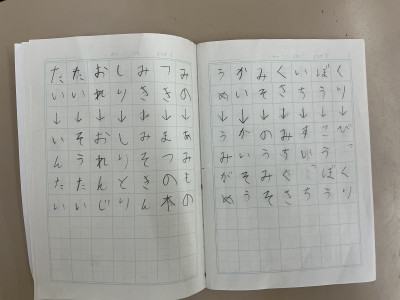 くり↓びっくり
ぼう↓こうぼう
いち↓
くさ↓みちぐさ
みそ↓のうみそ
かい↓かいそう
うめ↓うみがめ
みの↓あみもの
つき↓まつの本
みき↓みそきん
しり↓しりとり
おれ↓おれんじ
たい↓そうたい
たい↓いんたい